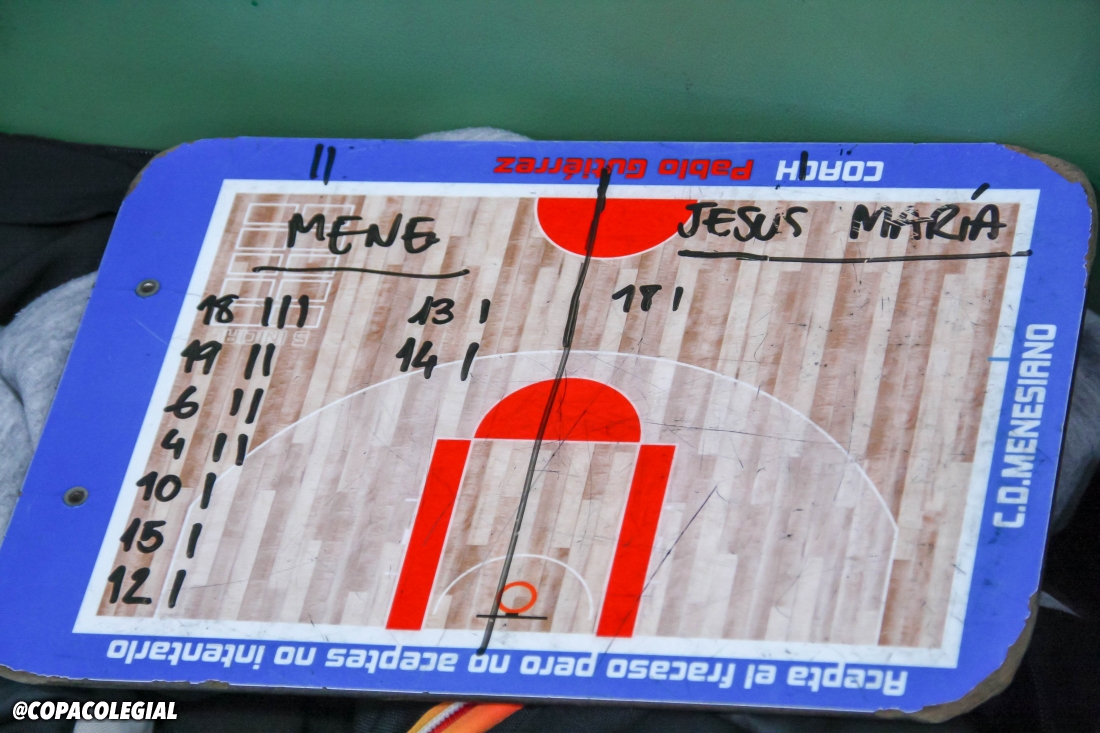 ||
|
COACH Pablo Gutiérrez
MENE
JESUS MARÍA
18 |||
13 |
18 |
19 ||
14 |
6 ||
4 ||
10 |
15 |
12 |
C.D.MENESIANO
Acepta el fracaso pero no aceptes no intentarlo
@COPACOLEGIAL